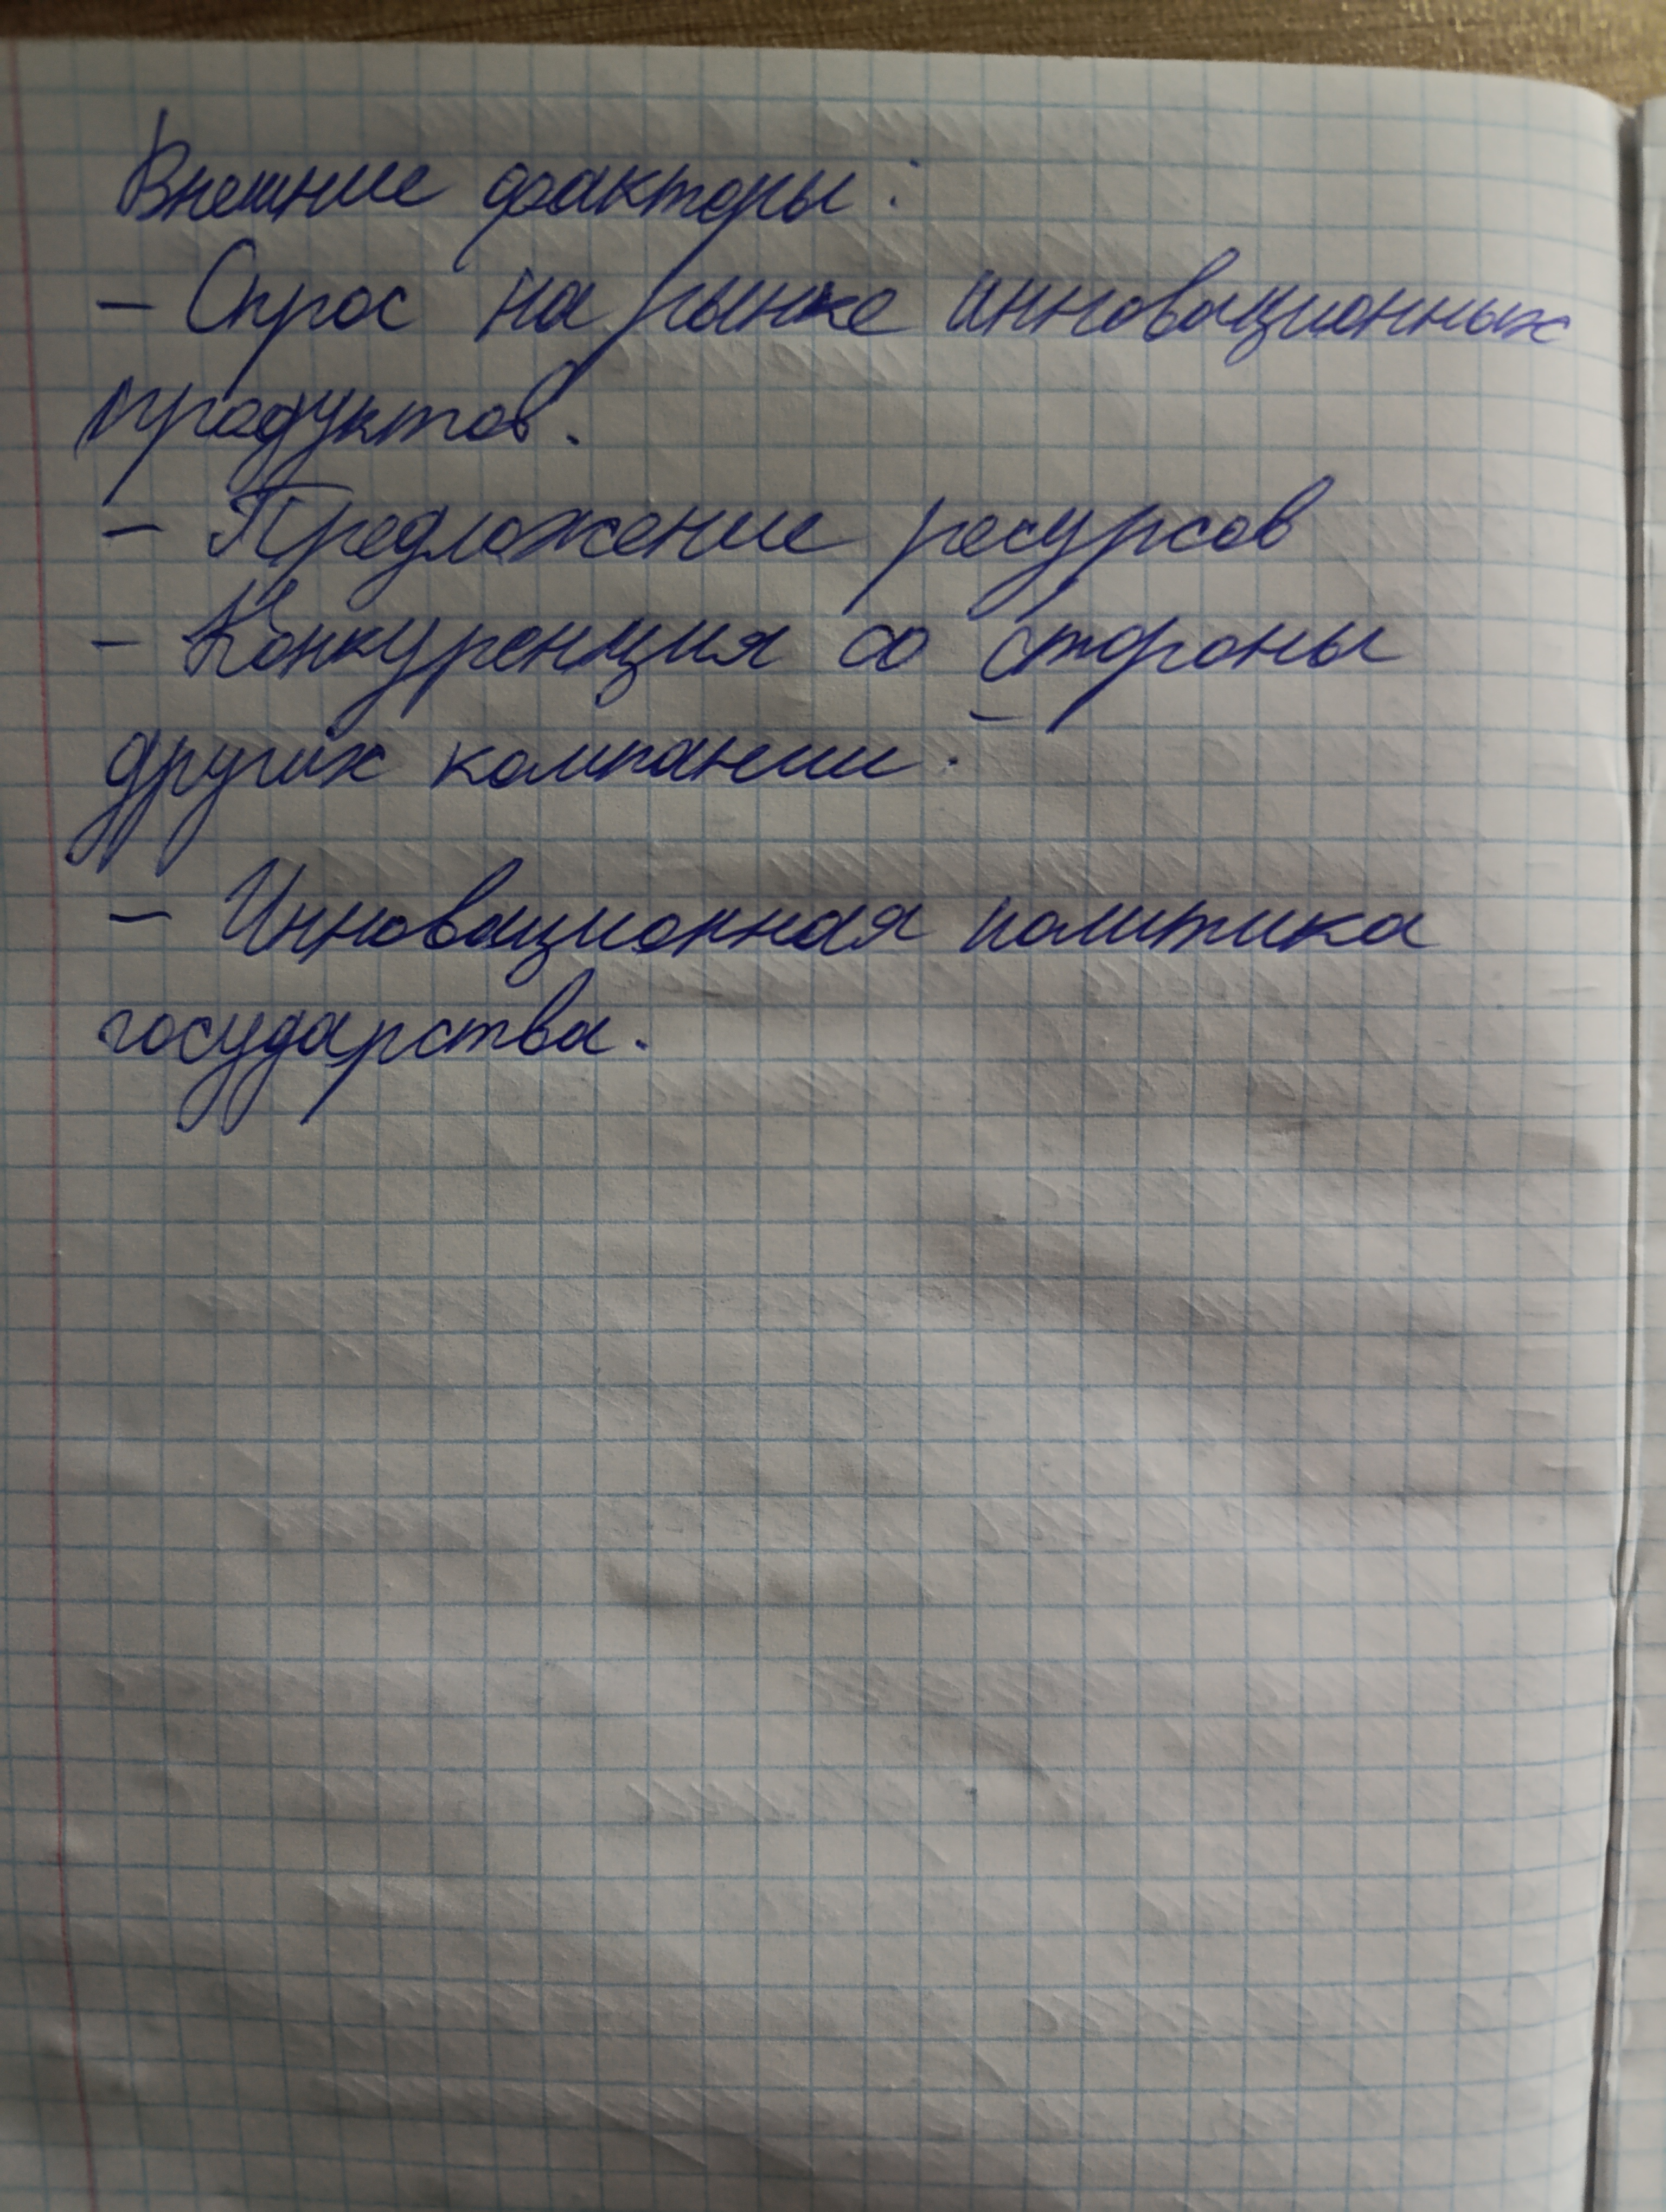 Внешние факторы:
- Спрос на рынке инновационных
продуктов.
- Предложение ресурсов
- Конкуренция со стороны
других компании.
- Инновационная политика
государства.